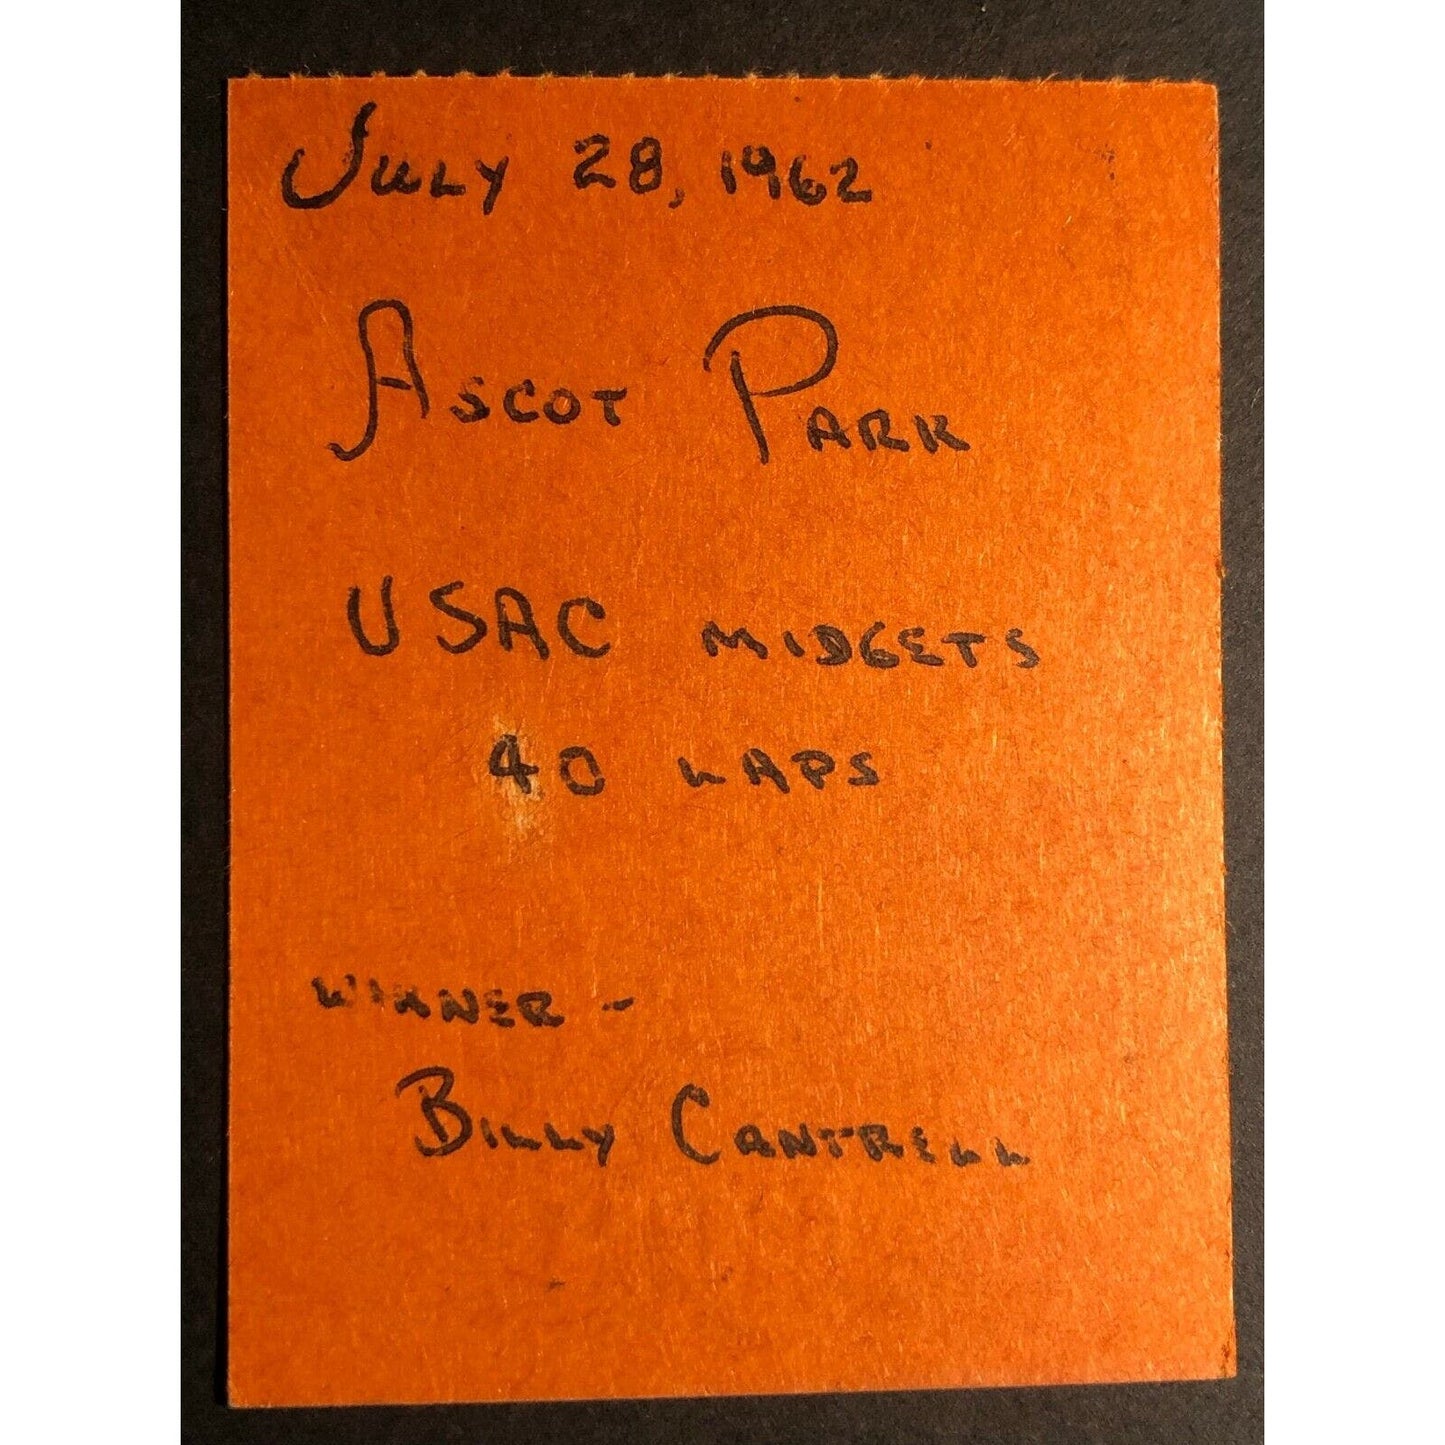 July 28, 1962
Ascot Park
USAC MIDGETS
40 LAPS
WINNER -
Billy Cantrell